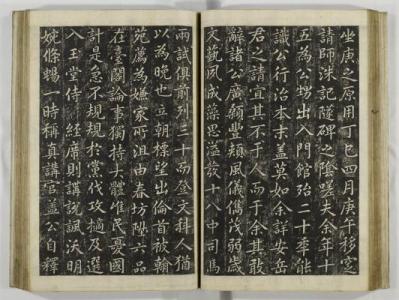 坐庚之原用丁巳四月庚午移窆
請師洙記隧碑之陰嗟夫余年十
五爲公甥出入門館殆二十季能
識公行治本末盖莫如余詳安岳
君之請宜其不于人而于余其敢
辭諸公廣顙豐頰風儀儁茂弱歲
文藝夙成藻思溢發十八中司馬
兩試俱前列三十而登文科人猶
以爲晚也立朝標望出倫首被翰
苑薦爲嫌家所沮由春坊陞六品
在臺閣論事獨持大體惟民憂國
計是急不規規於黨伐攻擿及選
入玉堂侍 經席則講說諷沃明
婉條暢一時稱眞講官盖公自釋